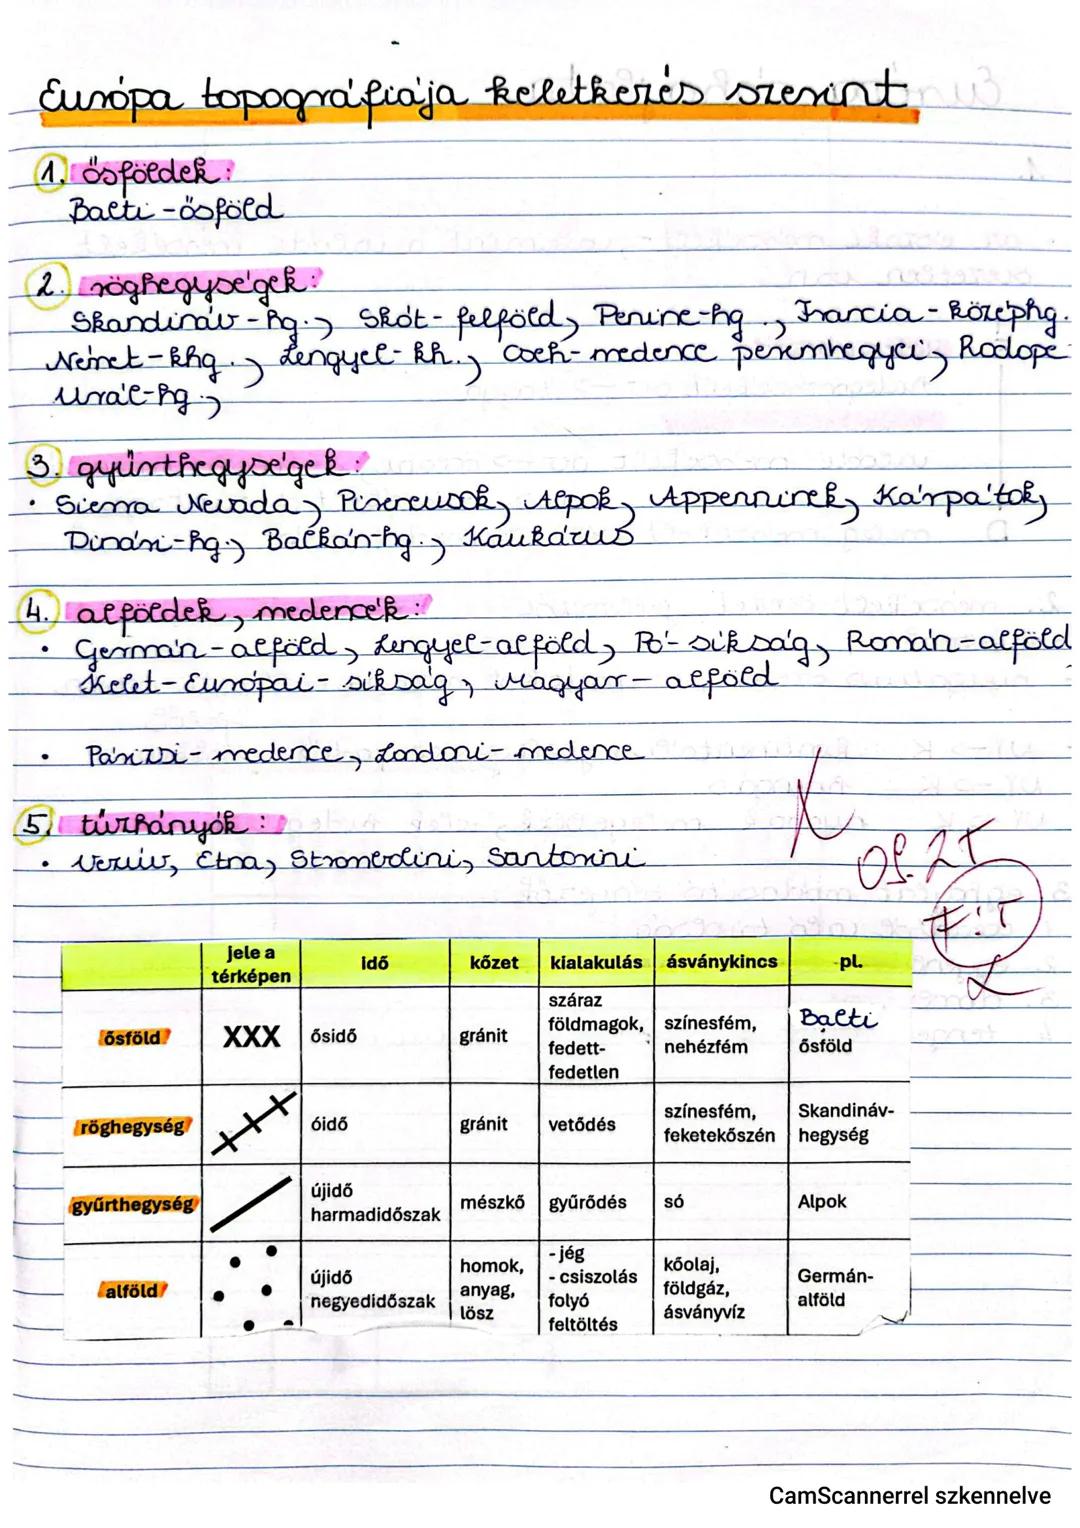 Európa topográfiája keletkezés szerint
1. ősföldek:
Balti-ősföld
2. röghegységek:
Skandináv-hg., Skót-felföld, Penine-hg., Francia-középhg.
Német-khg., Lengyel-kh., Cseh-medence peremhegyei, Rodope
Urál-hg.,
3. gyűrthegységek:
• Sierra Nevada, Pireneusok, Alpok, Appenninek, Kárpátok,
Dinári-hg., Balkán-hg., Kaukázus
4. alföldek, medencék:
• Germán-alföld, Lengyel-alföld, Pó-síkság, Román-alföld
Kelet-Európai-síkság, Magyar-alföld
• Párizsi-medence, Londoni-medence
5. tűzhányók:
• Vezúv, Etna, Santorini
jele a térképen idő kőzet kialakulás ásványkincs pl.
ősföld XXX ősidő gránit száraz földmagok, fedett-fedetlen színesfém, nehézfém Balti ősföld
röghegység óidő gránit vetődés színesfém, feketekőszén Skandináv-hegység
gyűrthegység újidő harmadidőszak mészkő gyűrődés só Alpok
alföld újidő negyedidőszak homok, anyag, lösz -jég -csiszolás folyó feltöltés kőolaj, földgáz, ásványvíz Germán-alföld
CamScannerrel szkennelve